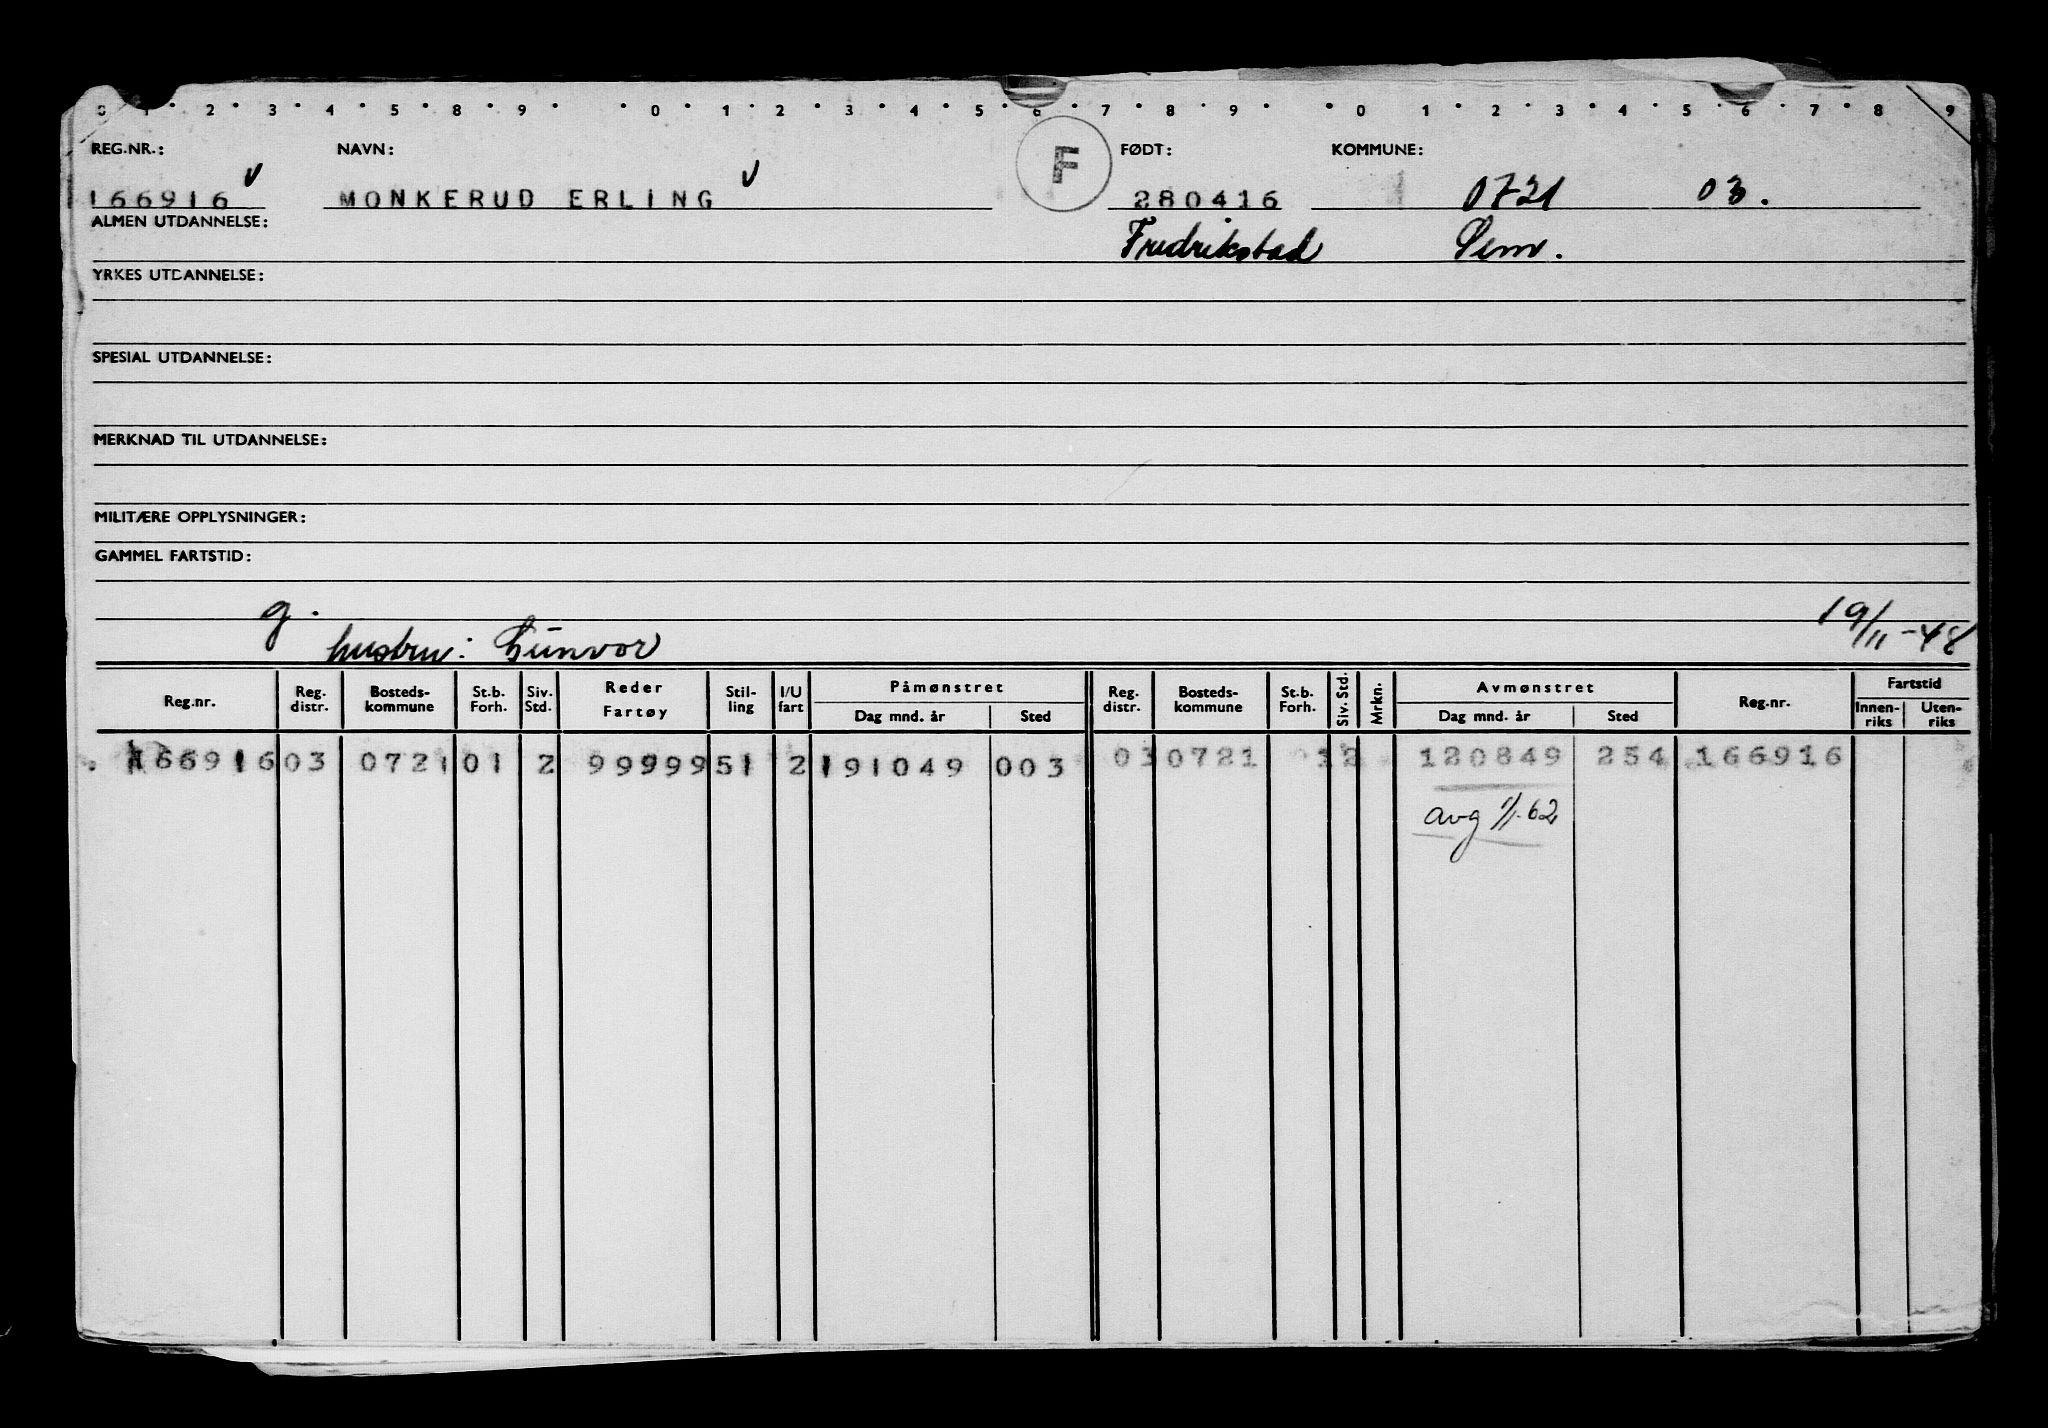 0 1 2 3 4 5 8 9 0 1 2 3 4 5 6 7 8 9 0 1 2 3 4 5 6 7 8 9
REG.NR.: NAVN: FØDT: KOMMUNE:
166916 v MONKERUD ERLING v F 280416 0721 03.
ALMEN UTDANNELSE: Fredrikstad Sem.
YRKES UTDANNELSE:
SPESIAL UTDANNELSE:
MERKNAD TIL UTDANNELSE:
MILITÆRE OPPLYSNINGER:
GAMMEL FARTSTID:
g. 19/11-48
hustru: Gunvor
Reg.nr. Reg. distr. Bosteds-kommune St.b. Forh. Siv. Std. Reder Fartøy Stil-ling I/U fart Påmønstret Dag mnd. år Sted Reg. distr. Bosteds-kommune St.b. Forh. Siv. Std. Mrkn. Avmønstret Dag mnd. år Sted Reg.nr. Fartstid Innen-riks Uten-riks
166916 03 0721 01 2 99999 51 2 191049 003 03 0721 1 2 120849 254 166916
avg 1/1.62